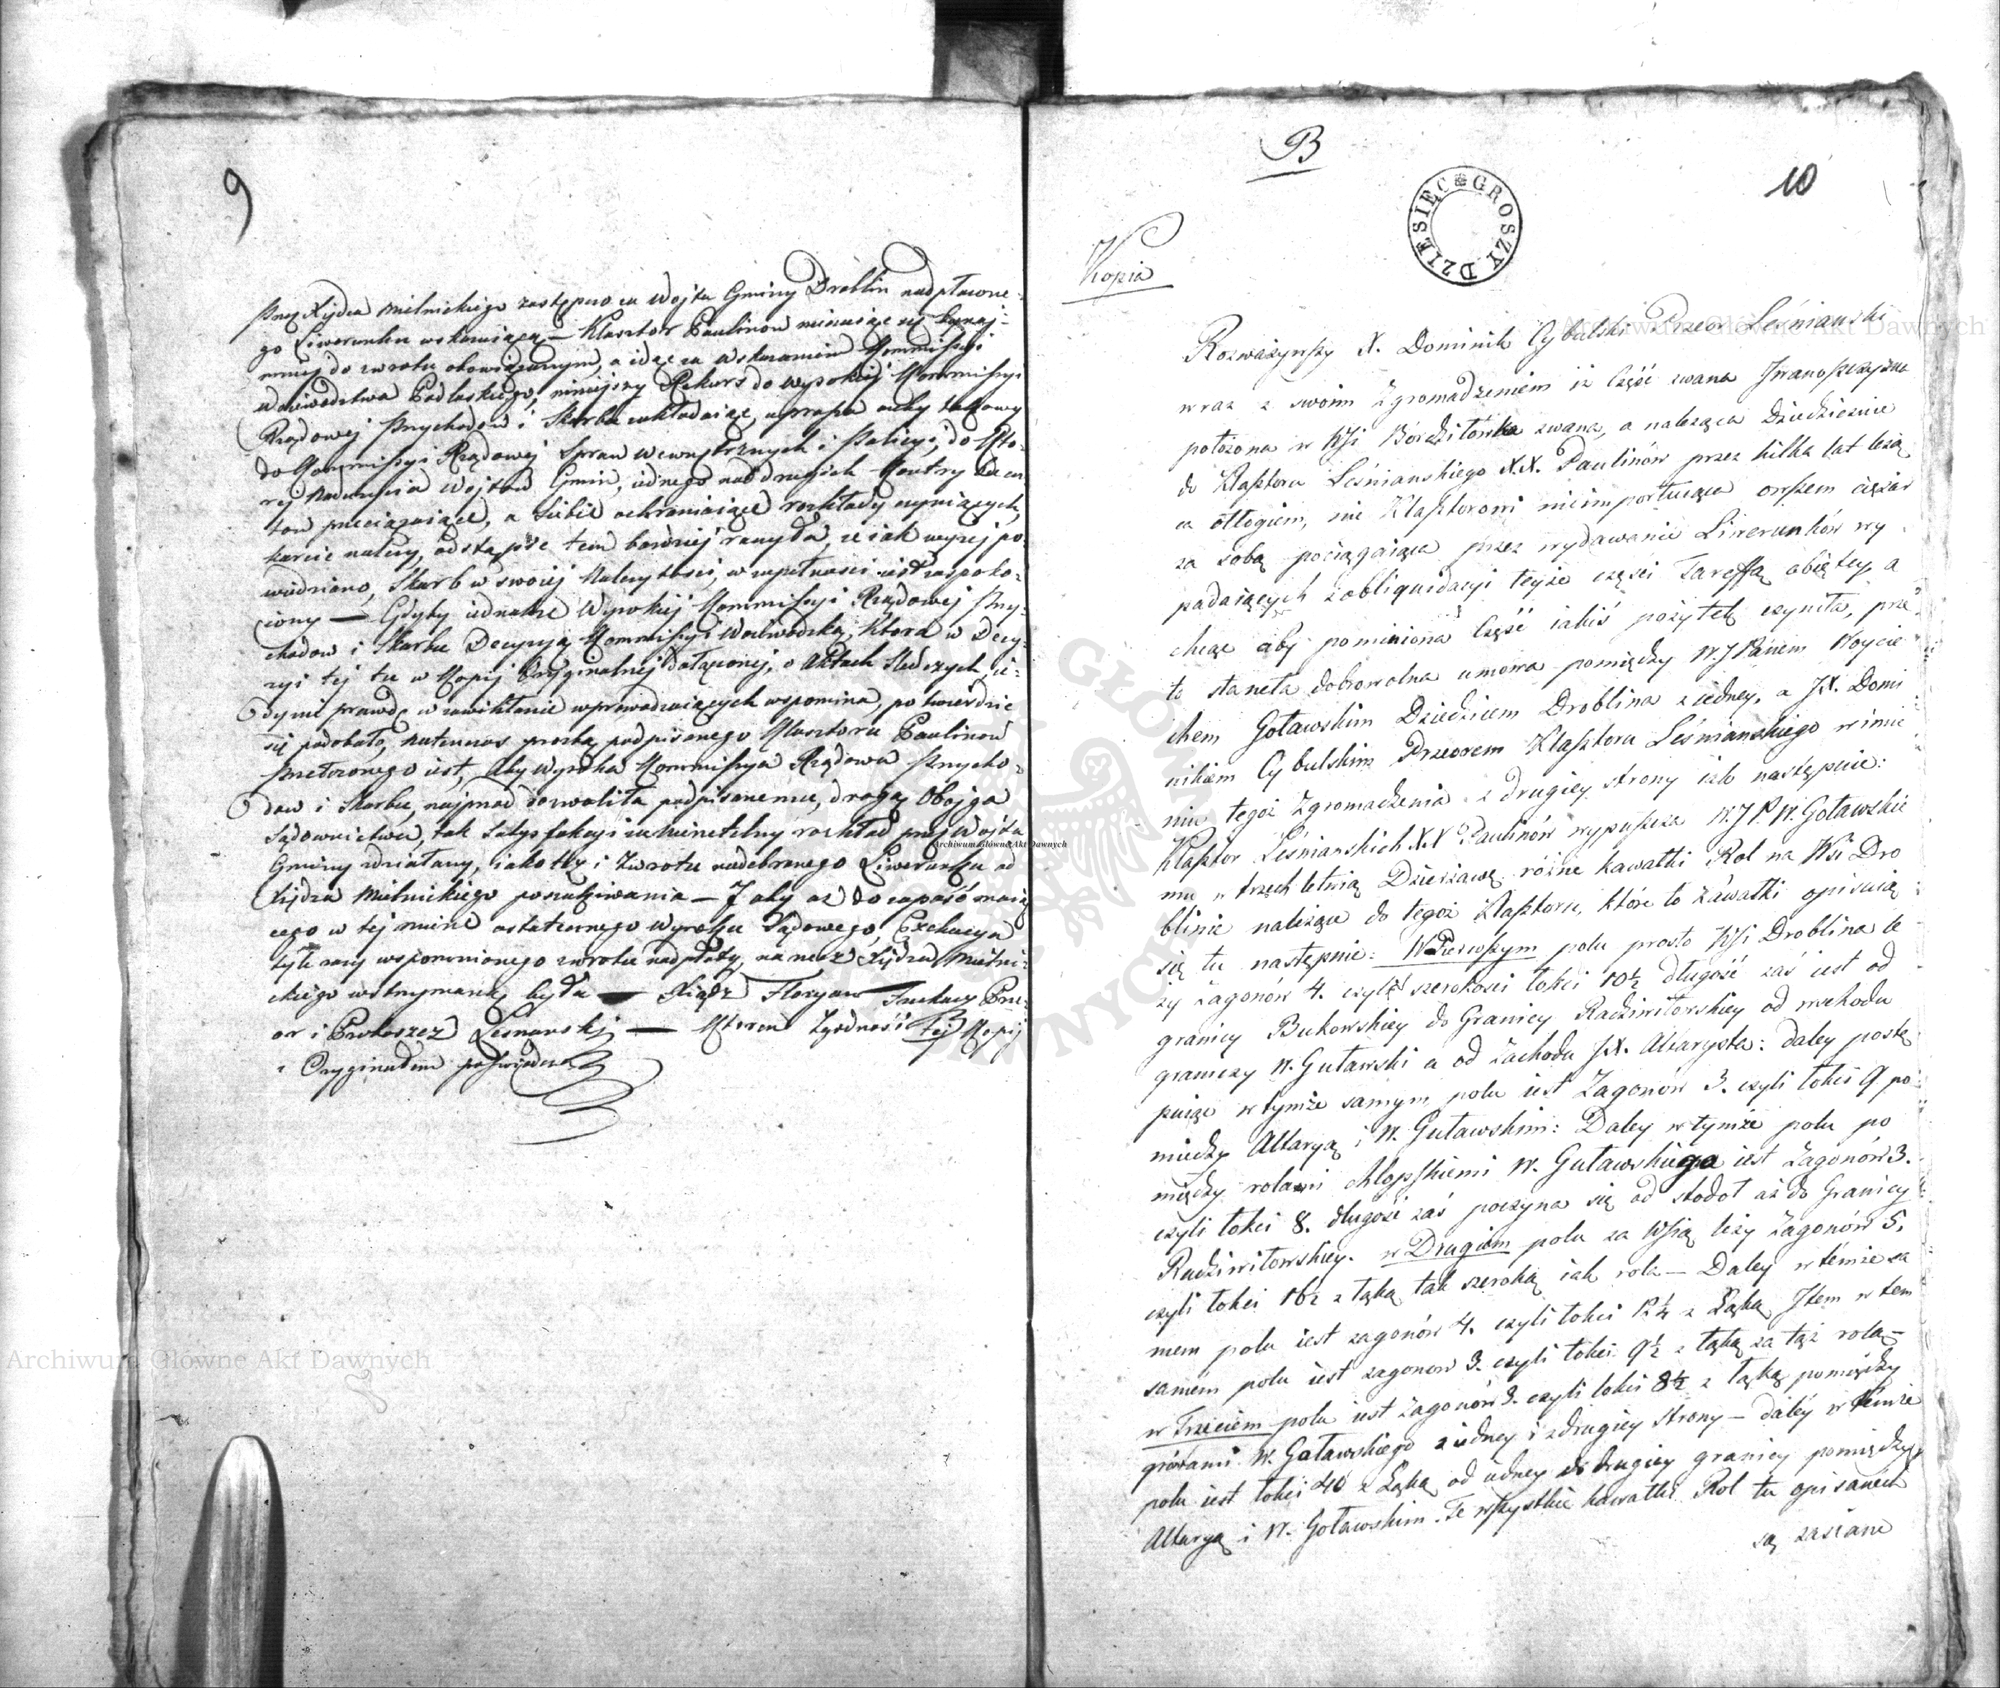 9
przez Xiędza Mielnickiego zastępwca Wojta Gminy Droblin nadpłacone-
go Liwerunku wskazuiącą — Klasztor Paulinow mieniąc się bynaj-
mniej do zwrotu obowiązanym, a idąc za wskazaniem Kommissyi
Wojewodztwa Podlaskiego, niniejszy Rekurs do wysokiej Kommissyi
Rządowej Przychodow i Skarbu zakładaiąc, uprasza aby takowy
do Kommissyi Rządowej Spraw Wewnętrznych i Policyi, do Kto-
rej Wojtow Gmin, iednego nad drugich Kontrybuen-
tow przeciążaiące, a siebie ochraniaiące rozkłady czyniących,
karcić należy, odesłać tem bardziej raczyła, że iak wyżej po-
wiedziano, Skarb w swoiej Należytości, w zupełności iest zaspoko-
iony — Gdyby iednakże Wysokiej Kommissyi Rządowej Przy-
chodow i Skarbu Decyzyą Kommissyi Woiewodzkiej, Ktora w Decy-
zyi tej tu w Kopij Oryginalnej dołączonej, o Aktach śledczych, ie-
dynie prawdę w zawikłanie wprowadzaiących wspomina, potwierdzić
się podobało, natenczas prozbą podpisanego Klasztoru Paulinow
Przełożonego iest, aby wysoka Kommissya Rządowa Przycho-
dow i Skarbu, najprzod dozwoliła podpisanemu, drogą Obojga
Sądownictwa, tak Satysfakcyi za nierzetelny rozkład przez Wojta
Gminy zdziałany, iako też i Zwrotu nadebranego Liwerunku od
Xiędza Mielnickiego poszukiwania — I aby aż do zapaść maią-
cego w tej mierze ostatecznego Wyroku Sądowego, Exekucya
tyle razy wspomnionego zwrotu nadpłaty, na rzecz Xiędza Mielni-
ckiego wstrzymaną była — Xiądz Floryan Prze-
or i Proboszcz Lesnianski — Ktoren Zgodność Tej Kopij
z Oryginałem poświadcza
B
10
DZIESIĘC GROSZY
Kopia
Rozważywszy X. Dominik Cybulski Przeor Leśnianski
wraz z swoim Zgromadzeniem iż Część zwana Iwanoszczyzna
położona w Wsi Bórdziłówka zwana, a należąca Dziedzicznie
do Klasztoru Leśnianskiego X.X. Paulinów przez kilka lat leżą
ca odłogiem, nic Klasztorowi nieimportuiąca owszem ciężar
za sobą pociągaiąca przez wydawanie Liwerunków wy
padaiących z obligacyi teyże części Tareffą obiętey, a
chcąc aby pominiona Część iakiś pożytek czyniła, prze
to staneła dobrowolna umowa pomiędzy WJPanem Woycie
chem Goławskim Dziedzicem Droblina z iedney, a JX. Domi
nikiem Cybulskim Przeorem Klasztoru Leśnianskiego w imie
niu tegoż Zgromadzenia z drugiey strony iak następuie:
Klasztor Leśnianskich X.X Paulinów wypuszcza WJP. W. Goławskie
mu w trzechletnią Dzierżawę różne kawałki Rol na Wsi Dro
blinie należące do tegoż Klasztoru, które to kawałki opisuią
się tu następnie: W Pierwszym polu prosto Wsi Droblina le
ży Zagonów 4. czyli szerokości łokci 10½ długość zaś iest od
granicy Bukowskiey do Granicy Radziwiłowskiey od wschodu
graniczy W. Gutawski a od Zachodu JX. Altarysta: daley postę
puiąc w tymże samym polu iest Zagonow 3. czyli łokci 9 po
między Altaryą i W. Gutawskim: Daley w tymże polu po
między rolami chłopskiemi W. Gutawskiego iest Zagonów 3.
czyli łokci 8. długość zaś poczyna się od stodoł aż do Granicy
Radziwiłowskiey. w Drugiem polu za Wsią leży Zagonów 5.
czyli łokci 16½ z łąką tak szeroką iak rola — Daley w témże sa
mem polu iest zagonów 4. czyli łokci 12¼ z Łąką Item w tem
samém polu iest zagonow 3. czyli łokci 9½ z łąką za tąż rolą —
w Trzeciem polu iest Zagonów 3. czyli łokci 8½ z łąką pomiędzy
W. Gatawskiego z iedney i z drugiey strony — daléy w témże
polu iest łokci 40 z Łąką od iedney do drugiey granicy pomiędzy
Altaryą i W. Goławskim. Te wszystkie kawałki Rol tu opisanéch
są zasiane
Archiwum Główne Akt Dawnych
Archiwum Główne Akt Dawnych
Archiwum Główne Akt Dawnych